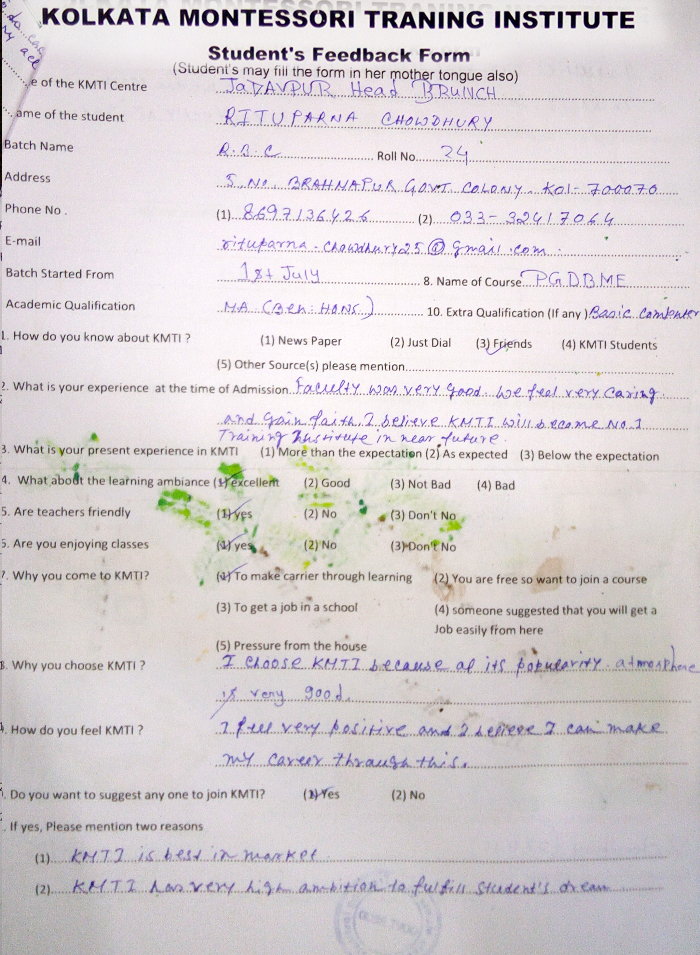 KOLKATA MONTESSORI TRANING INSTITUTE
Student's Feedback Form
(Student's may fill the form in her mother tongue also)
e of the KMTI Centre JADAVPUR Head BRUNCH
ame of the student RITUPARNA CHOWDHURY
Batch Name R.B.C Roll No. 24
Address S. No. BRAHNAPUR GOVT COLONY. KOL- 700070
Phone No. (1) 8697136426 (2) 033-32417064
E-mail rituparna.chowdhury25@gmail.com.
Batch Started From 1st July 8. Name of Course PGDBME
Academic Qualification MA (Ben: HONS) 10. Extra Qualification (If any) Basic Computer
1. How do you know about KMTI ? (1) News Paper (2) Just Dial (3) Friends (4) KMTI Students
(5) Other Source(s) please mention
2. What is your experience at the time of Admission Faculty was very good. We feel very caring
and gain faith. I believe KMTI will become No.1
Training Institute in near future.
3. What is your present experience in KMTI (1) More than the expectation (2) As expected (3) Below the expectation
4. What about the learning ambiance (1) excellent (2) Good (3) Not Bad (4) Bad
5. Are teachers friendly (1) yes (2) No (3) Don't No
5. Are you enjoying classes (1) yes (2) No (3) Don't No
7. Why you come to KMTI? (1) To make carrier through learning (2) You are free so want to join a course
(3) To get a job in a school (4) someone suggested that you will get a
Job easily from here
(5) Pressure from the house
8. Why you choose KMTI ? I choose KMTI because of its popularity. atmosphere
is very good.
. How do you feel KMTI ? I feel very positive and I believe I can make
my career through this.
. Do you want to suggest any one to join KMTI? (1) Yes (2) No
. If yes, Please mention two reasons
(1) KMTI is best in market.
(2) KMTI has very high ambition to fulfill student's dream